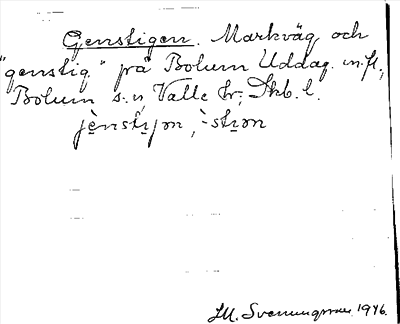 Genstigen. Markväg och
"genstig" på Bolum Uddag. m.fl.,
Bolum s:n, Valle hr; Skb. l.
jènstıjən, `-stıən
SM. Svenungsson 1946.